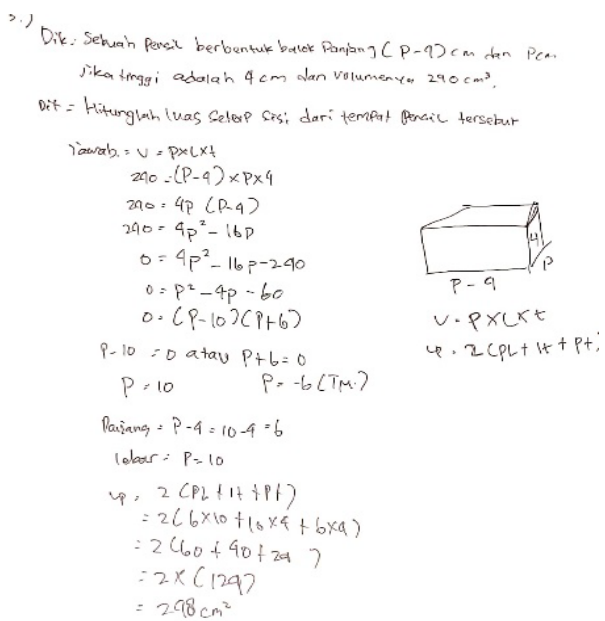 3.)
Dik : Sebuah Pensil berbentuk balok Panjang (P-4) cm dan P cm
Jika tinggi adalah 4 cm dan volumenya 240 cm³.
Dit = Hitunglah luas setiap sisi dari tempat Pensil tersebut
Jawab = V = PxLxt
240 = (P-4) x P x 4
240 = 4P (P-4)
240 = 4P² - 16P
0 = 4P² - 16P - 240
0 = P² - 4P - 60
0 = (P-10)(P+6)
P-10 = 0 atau P+6 = 0
P = 10 P = -6 (TM.)
Panjang = P-4 = 10-4 = 6
lebar = P = 10
Lp = 2 (PL + lt + Pt)
= 2(6x10 + 10x4 + 6x4)
= 2 (60 + 40 + 24)
= 2 x (124)
= 248 cm²
4
P
P - 4
V = PxLxt
Lp = 2 (PL + lt + Pt)